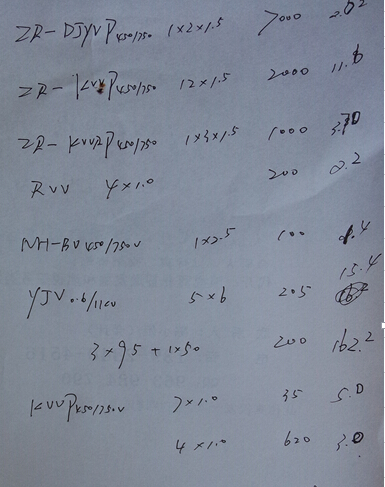 ZR-DJYVP450/750 1×2×1.5 7000
ZR-KVVP450/750 12×1.5 2000 11.8
ZR-KVVRP450/750 1×3×1.5 1000
RVV 4×1.0 200 2.2
NH-BV450/750V 1×2.5 100
15.4
YJV0.6/1KV 5×6 205
3×95+1×50 200 162.2
KVVP450/750V 7×1.0 35 5.0
4×1.0 620 3.0